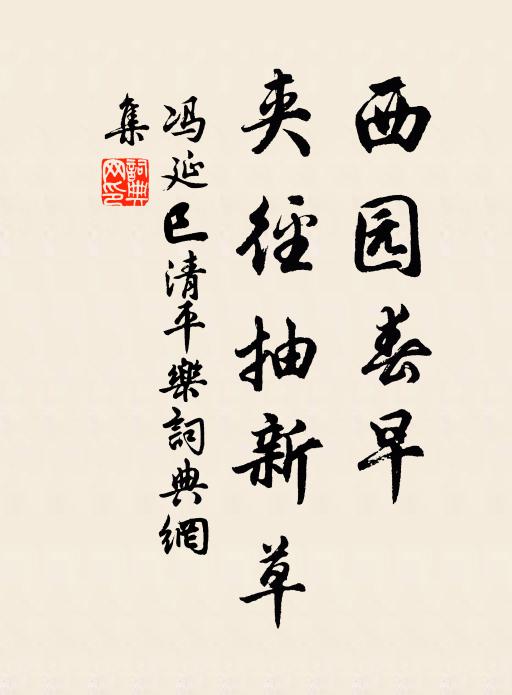 西园春早
夹徑抽新草
冯延巳清平樂詞典網
集
詞典網印